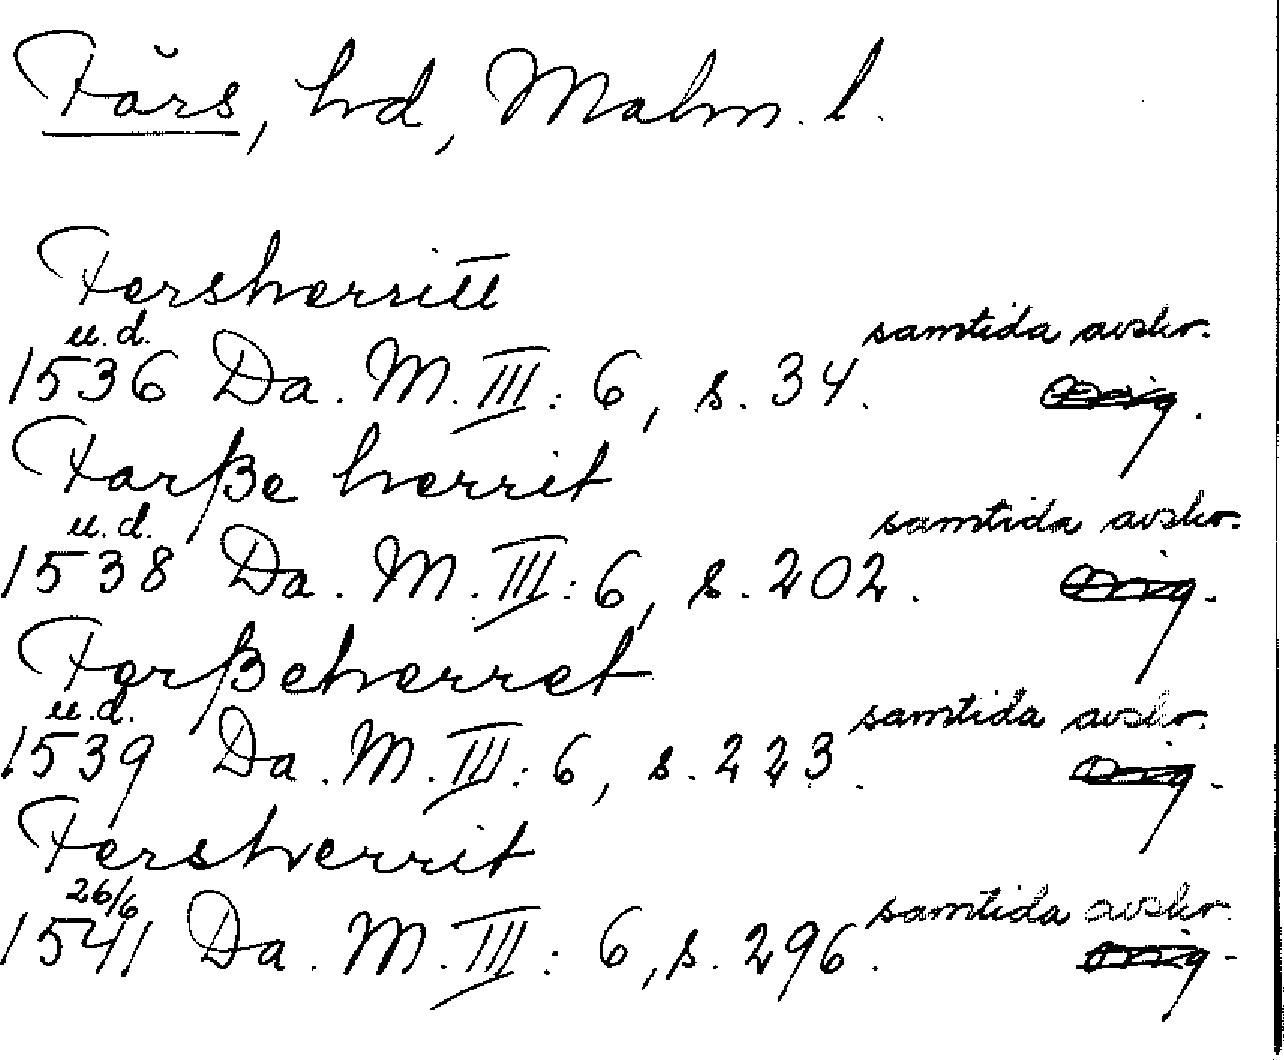 Färs, hd, Malm. l.
Fersherritt
u.d. samtida avskr.
1536 Da. M. III: 6, s. 34. Orig.
Farße herrit
u.d. samtida avskr.
1538 Da. M. III: 6, s. 202. Orig.
Ferßeherret
u.d. samtida avskr.
1539 Da. M. III: 6, s. 223. Orig.
Fersherrit
26/6 samtida avskr.
1541 Da. M. III: 6, s. 296. Orig.